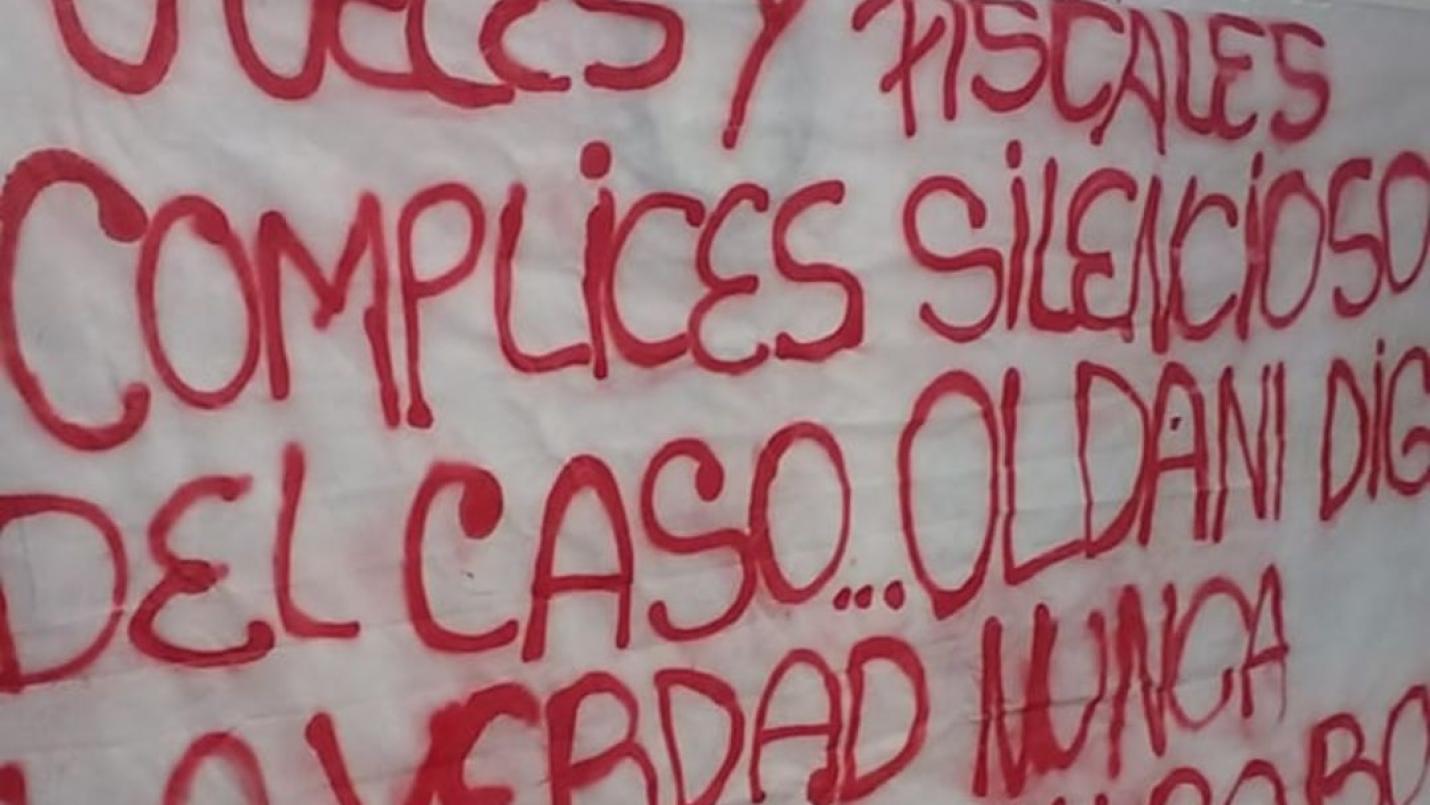 JUECES Y FISCALES
COMPLICES SILENCIOSO
DEL CASO...OLDANI DIG
LA VERDAD NUNCA
ROBO